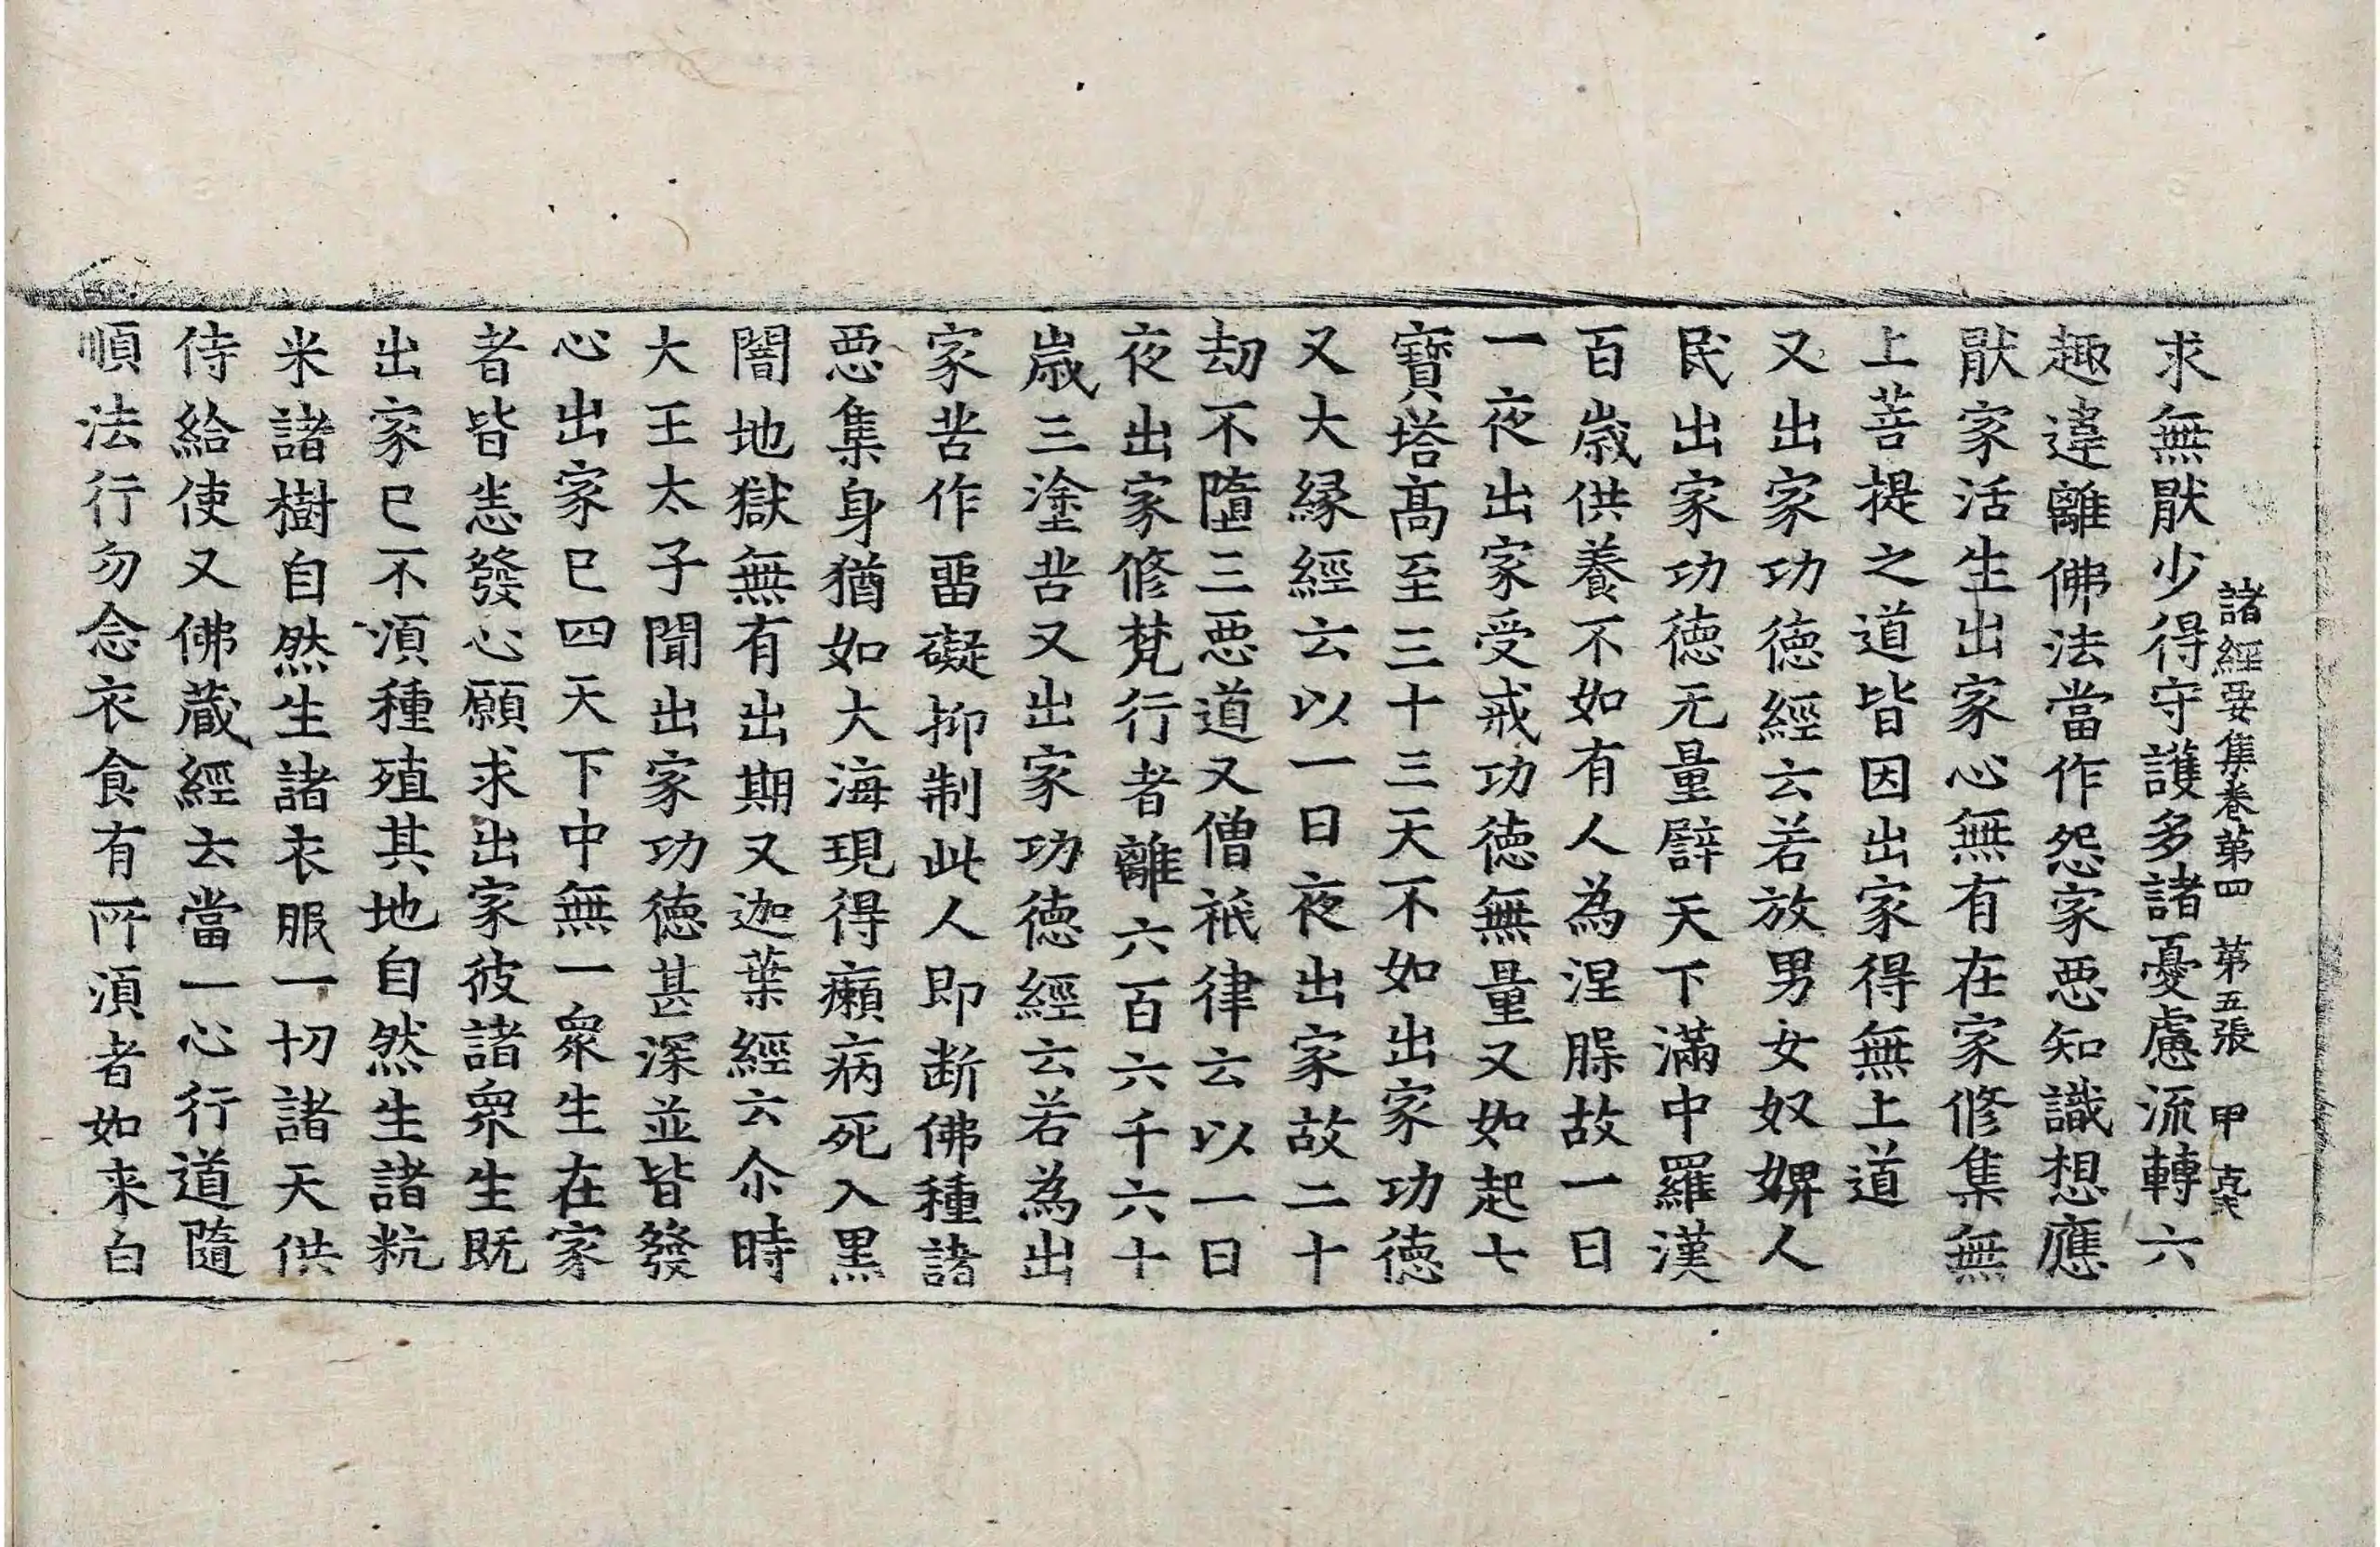 諸經要集卷第四　第五張　甲
求無猒少得守護多諸憂慮流轉六
趣違離佛法當作怨家惡知識想應
猒家活生出家心無有在家修集無
上菩提之道皆因出家得無上道
又出家功徳經云若放男女奴婢人
民出家功徳无量譬天下滿中羅漢
百歲供養不如有人為涅槃故一日
一夜出家受戒功徳無量又如起七
寶塔髙至三十三天不如出家功徳
又大縁經云以一日夜出家故二十
劫不墮三惡道又僧祇律云以一日
夜出家修梵行者離六百六千六十
歲三塗苦又出家功徳經云若為出
家苦作留礙抑制此人即断佛種諸
惡集身猶如大海現得癩病死入黒
闇地獄無有出期又迦葉經云尒時
大王太子聞出家功徳甚深並皆發
心出家已四天下中無一衆生在家
者皆悉發心願求出家彼諸衆生既
出家已不湏種殖其地自然生諸粇
米諸樹自然生諸衣服一切諸天供
侍給使又佛蔵經云當一心行道隨
順法行勿念衣食有所湏者如来白